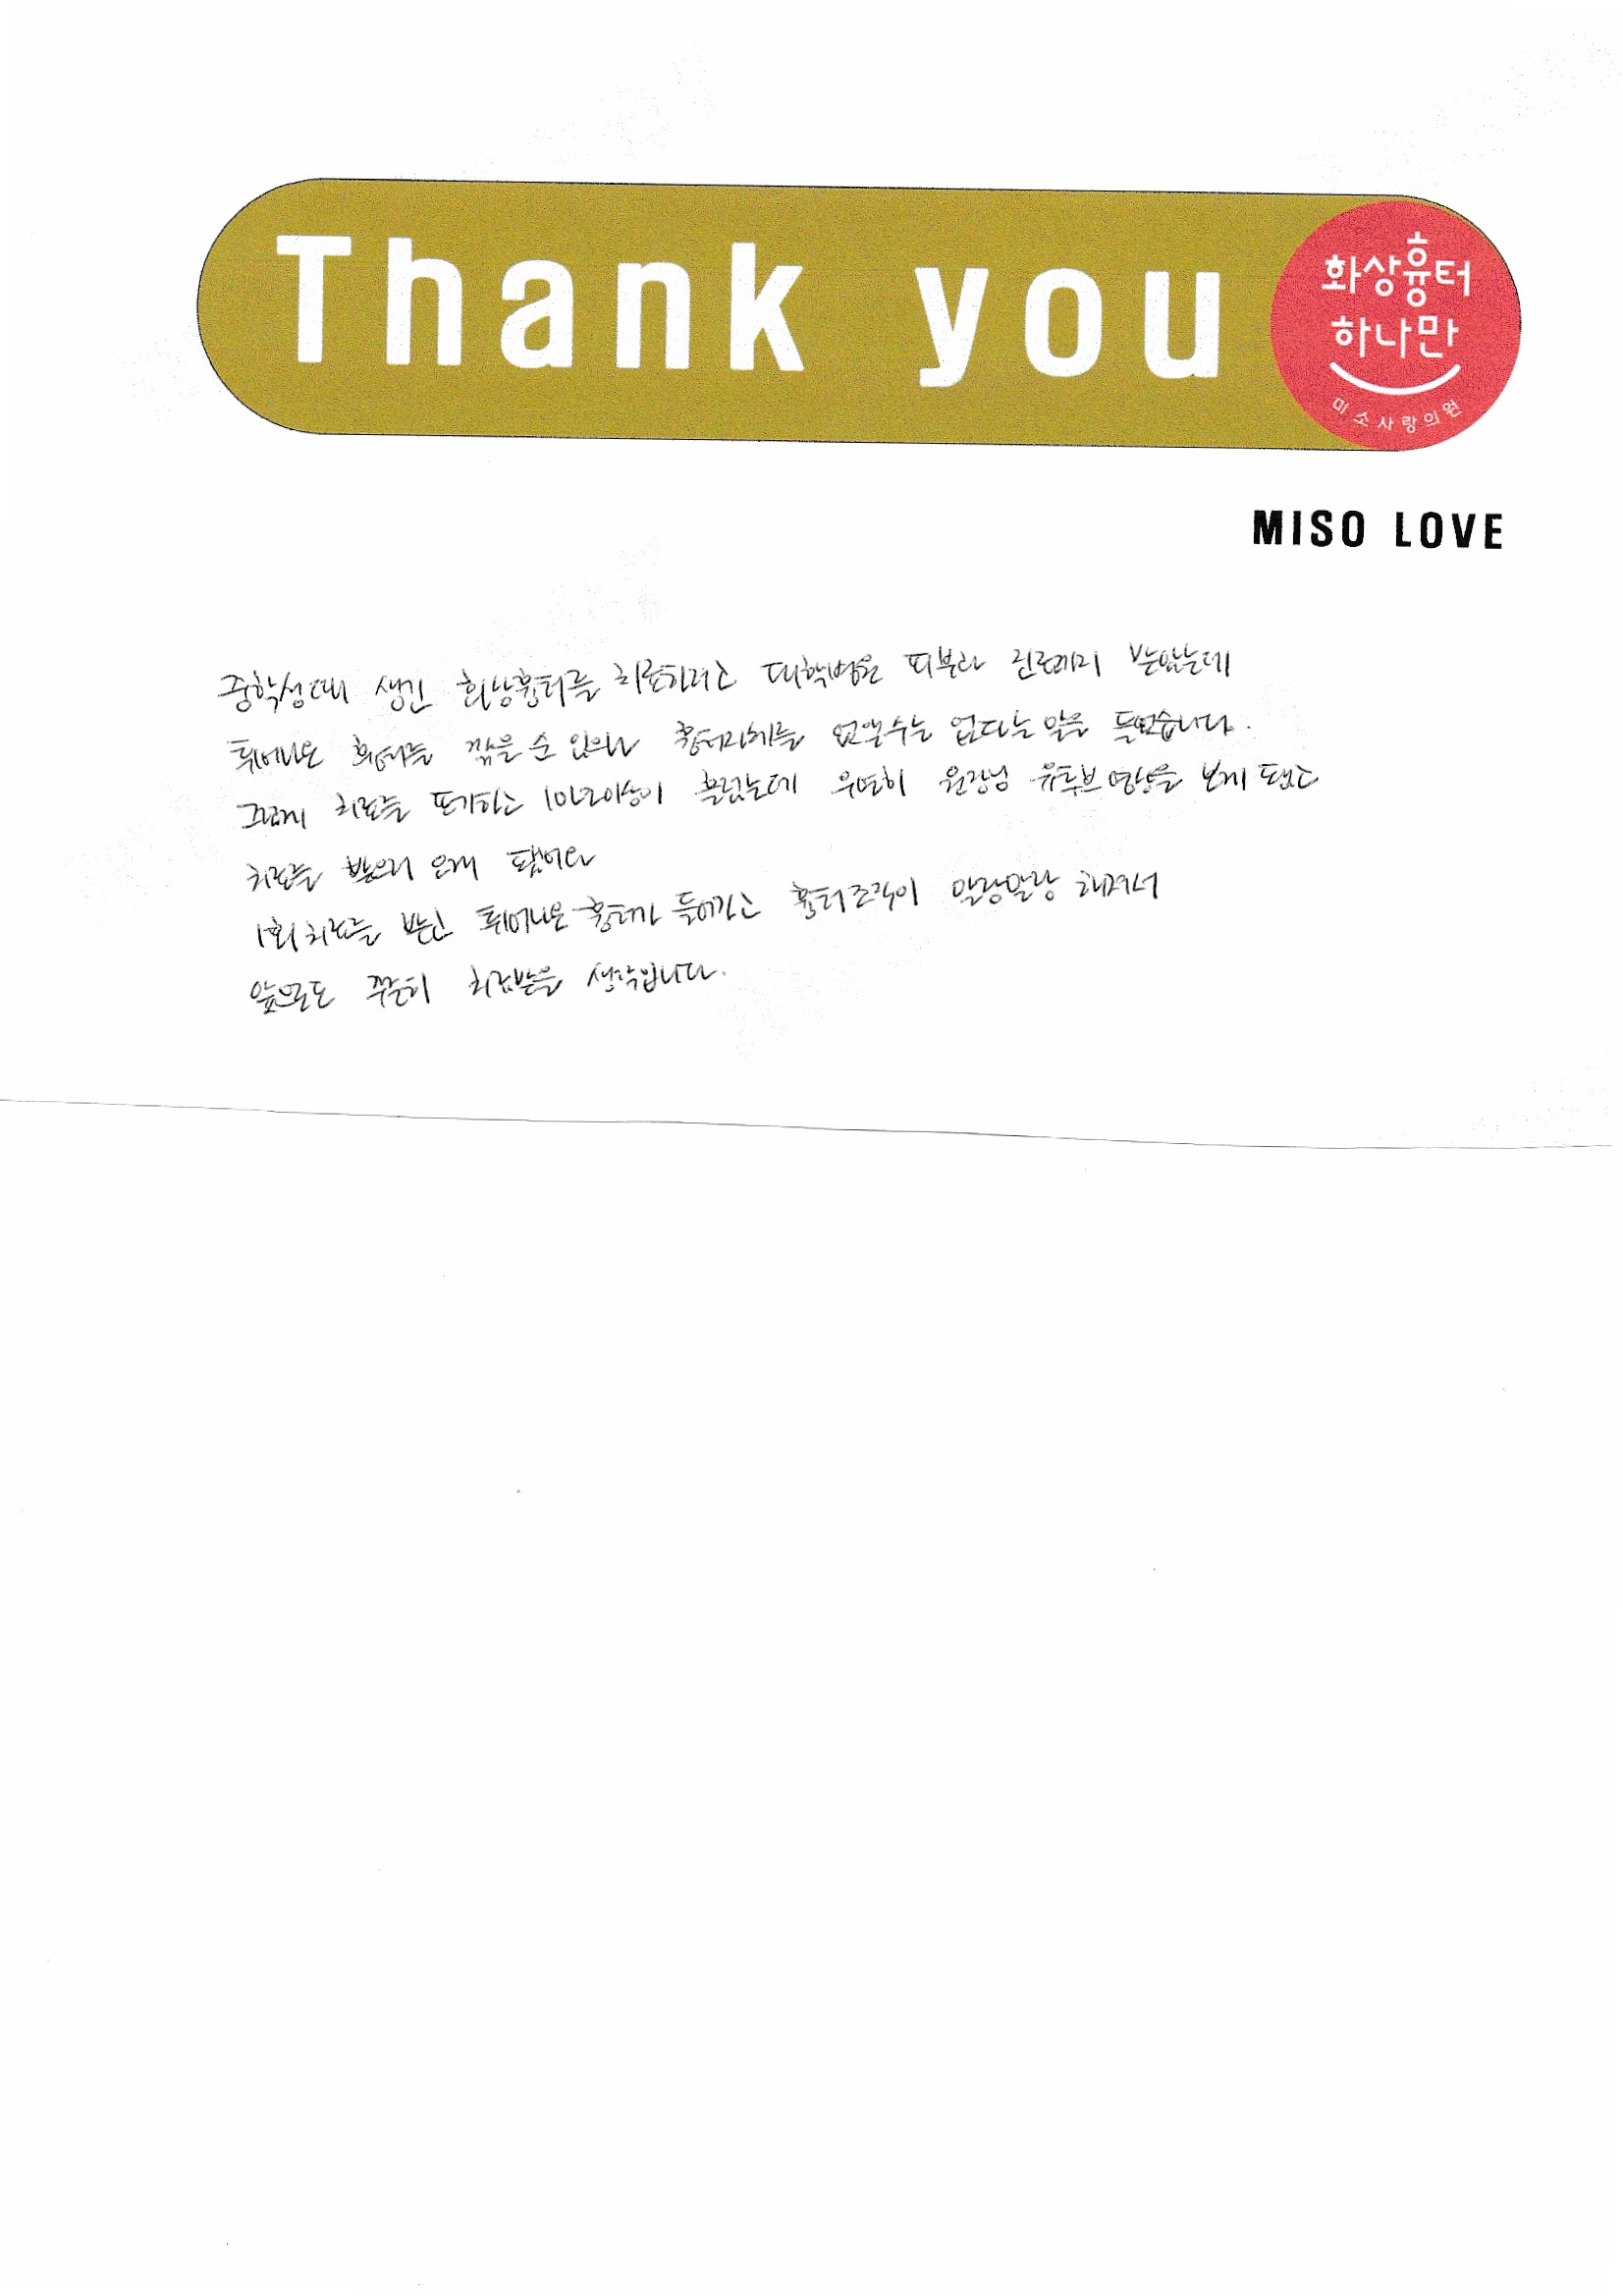 Thank you
화상흉터
하나만
미소사랑의원
MISO LOVE
중학생때 생긴 화상흉터를 치료하려고 대학병원 피부과 진료까지 받았는데
튀어나온 흉터를 깎을 순 있으나 흉터자체를 없앨수는 없다는 말을 들었습니다.
그래서 치료를 포기하고 10년이상이 흘렀는데 우연히 원장님 유튜브 영상을 보게 됐고
치료를 받으러 오게 됐어요
1회 치료를 받고 튀어나온 흉터가 들어가고 흉터조직이 말랑말랑 해져서
앞으로도 꾸준히 치료받을 생각입니다.